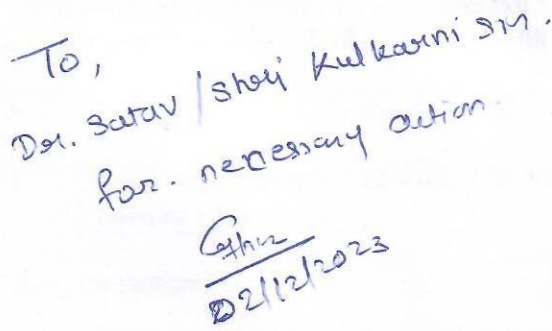 To,
Dr. Satav / Shri Kulkarni sir.
for. necessary action.
02/12/2023